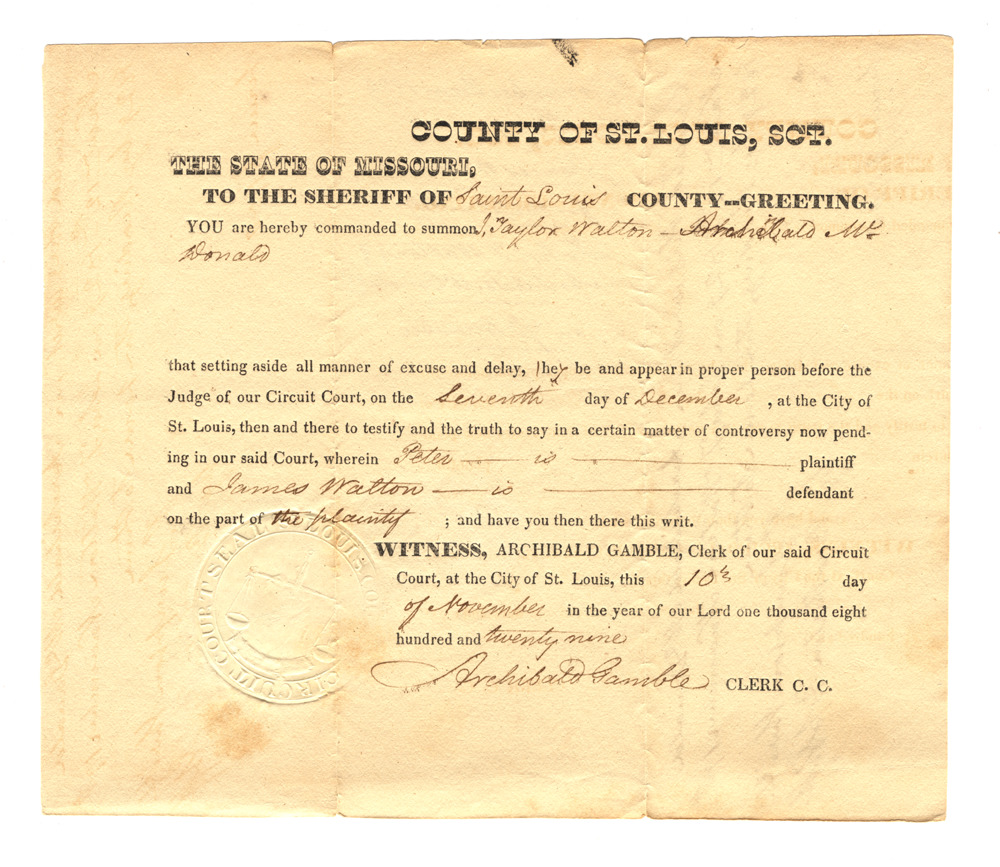 COUNTY OF ST. LOUIS, SCT.
THE STATE OF MISSOURI,
TO THE SHERIFF OF Saint Louis COUNTY--GREETING.
YOU are hereby commanded to summon J. Taylor Walton — Archibald Mc
Donald
that setting aside all manner of excuse and delay, they be and appear in proper person before the
Judge of our Circuit Court, on the Seventh day of December, at the City of
St. Louis, then and there to testify and the truth to say in a certain matter of controversy now pend-
ing in our said Court, wherein Peter — is — plaintiff
and James Walton — is — defendant
on the part of the plaintif ; and have you then there this writ.
WITNESS, ARCHIBALD GAMBLE, Clerk of our said Circuit
Court, at the City of St. Louis, this 10th day
of November in the year of our Lord one thousand eight
hundred and twenty nine
Archibald Gamble CLERK C. C.
CIRCUIT COURT SEAL ST. LOUIS CO